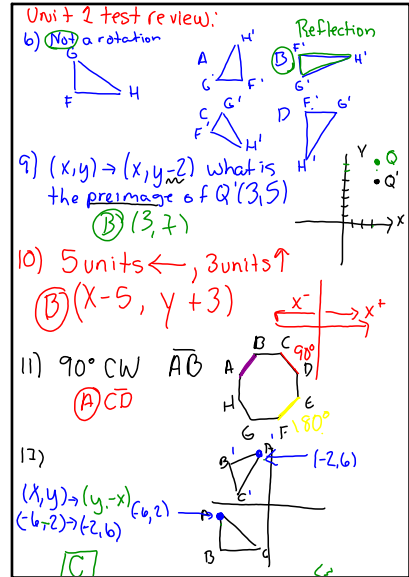 Unit 2 test review:
6) Not a rotation
Reflection
G
F
H
A
H'
G'
F'
B
F'
H'
G'
C
G'
F'
H'
D
F'
G'
H'
9) (x,y) → (x, y-2) what is
the preimage of Q'(3,5)
B (3,7)
Y
Q
Q'
X
10) 5 units ←, 3 units ↑
B (X-5, y+3)
X⁻
X⁺
11) 90° CW AB
A CD
B
C
90°
A
D
H
E
G
F
180°
17)
A'
B'
C'
(-2,6)
(X,y) → (y,-x)
(-6,-2) → (-2,6)
(-6,2)
A
B
C
C